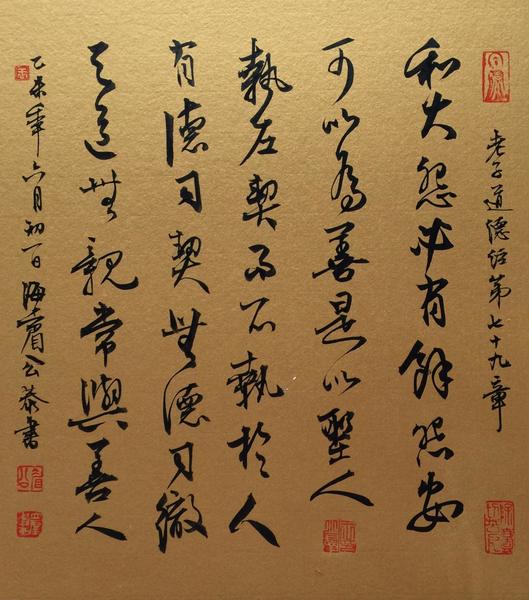 老子道德经第七十九章
和大怨必有餘怨安
可以為善是以聖人
執左契而不執於人
有德司契無德司徹
天道無親常與善人
乙未年六月初一日海公恭書